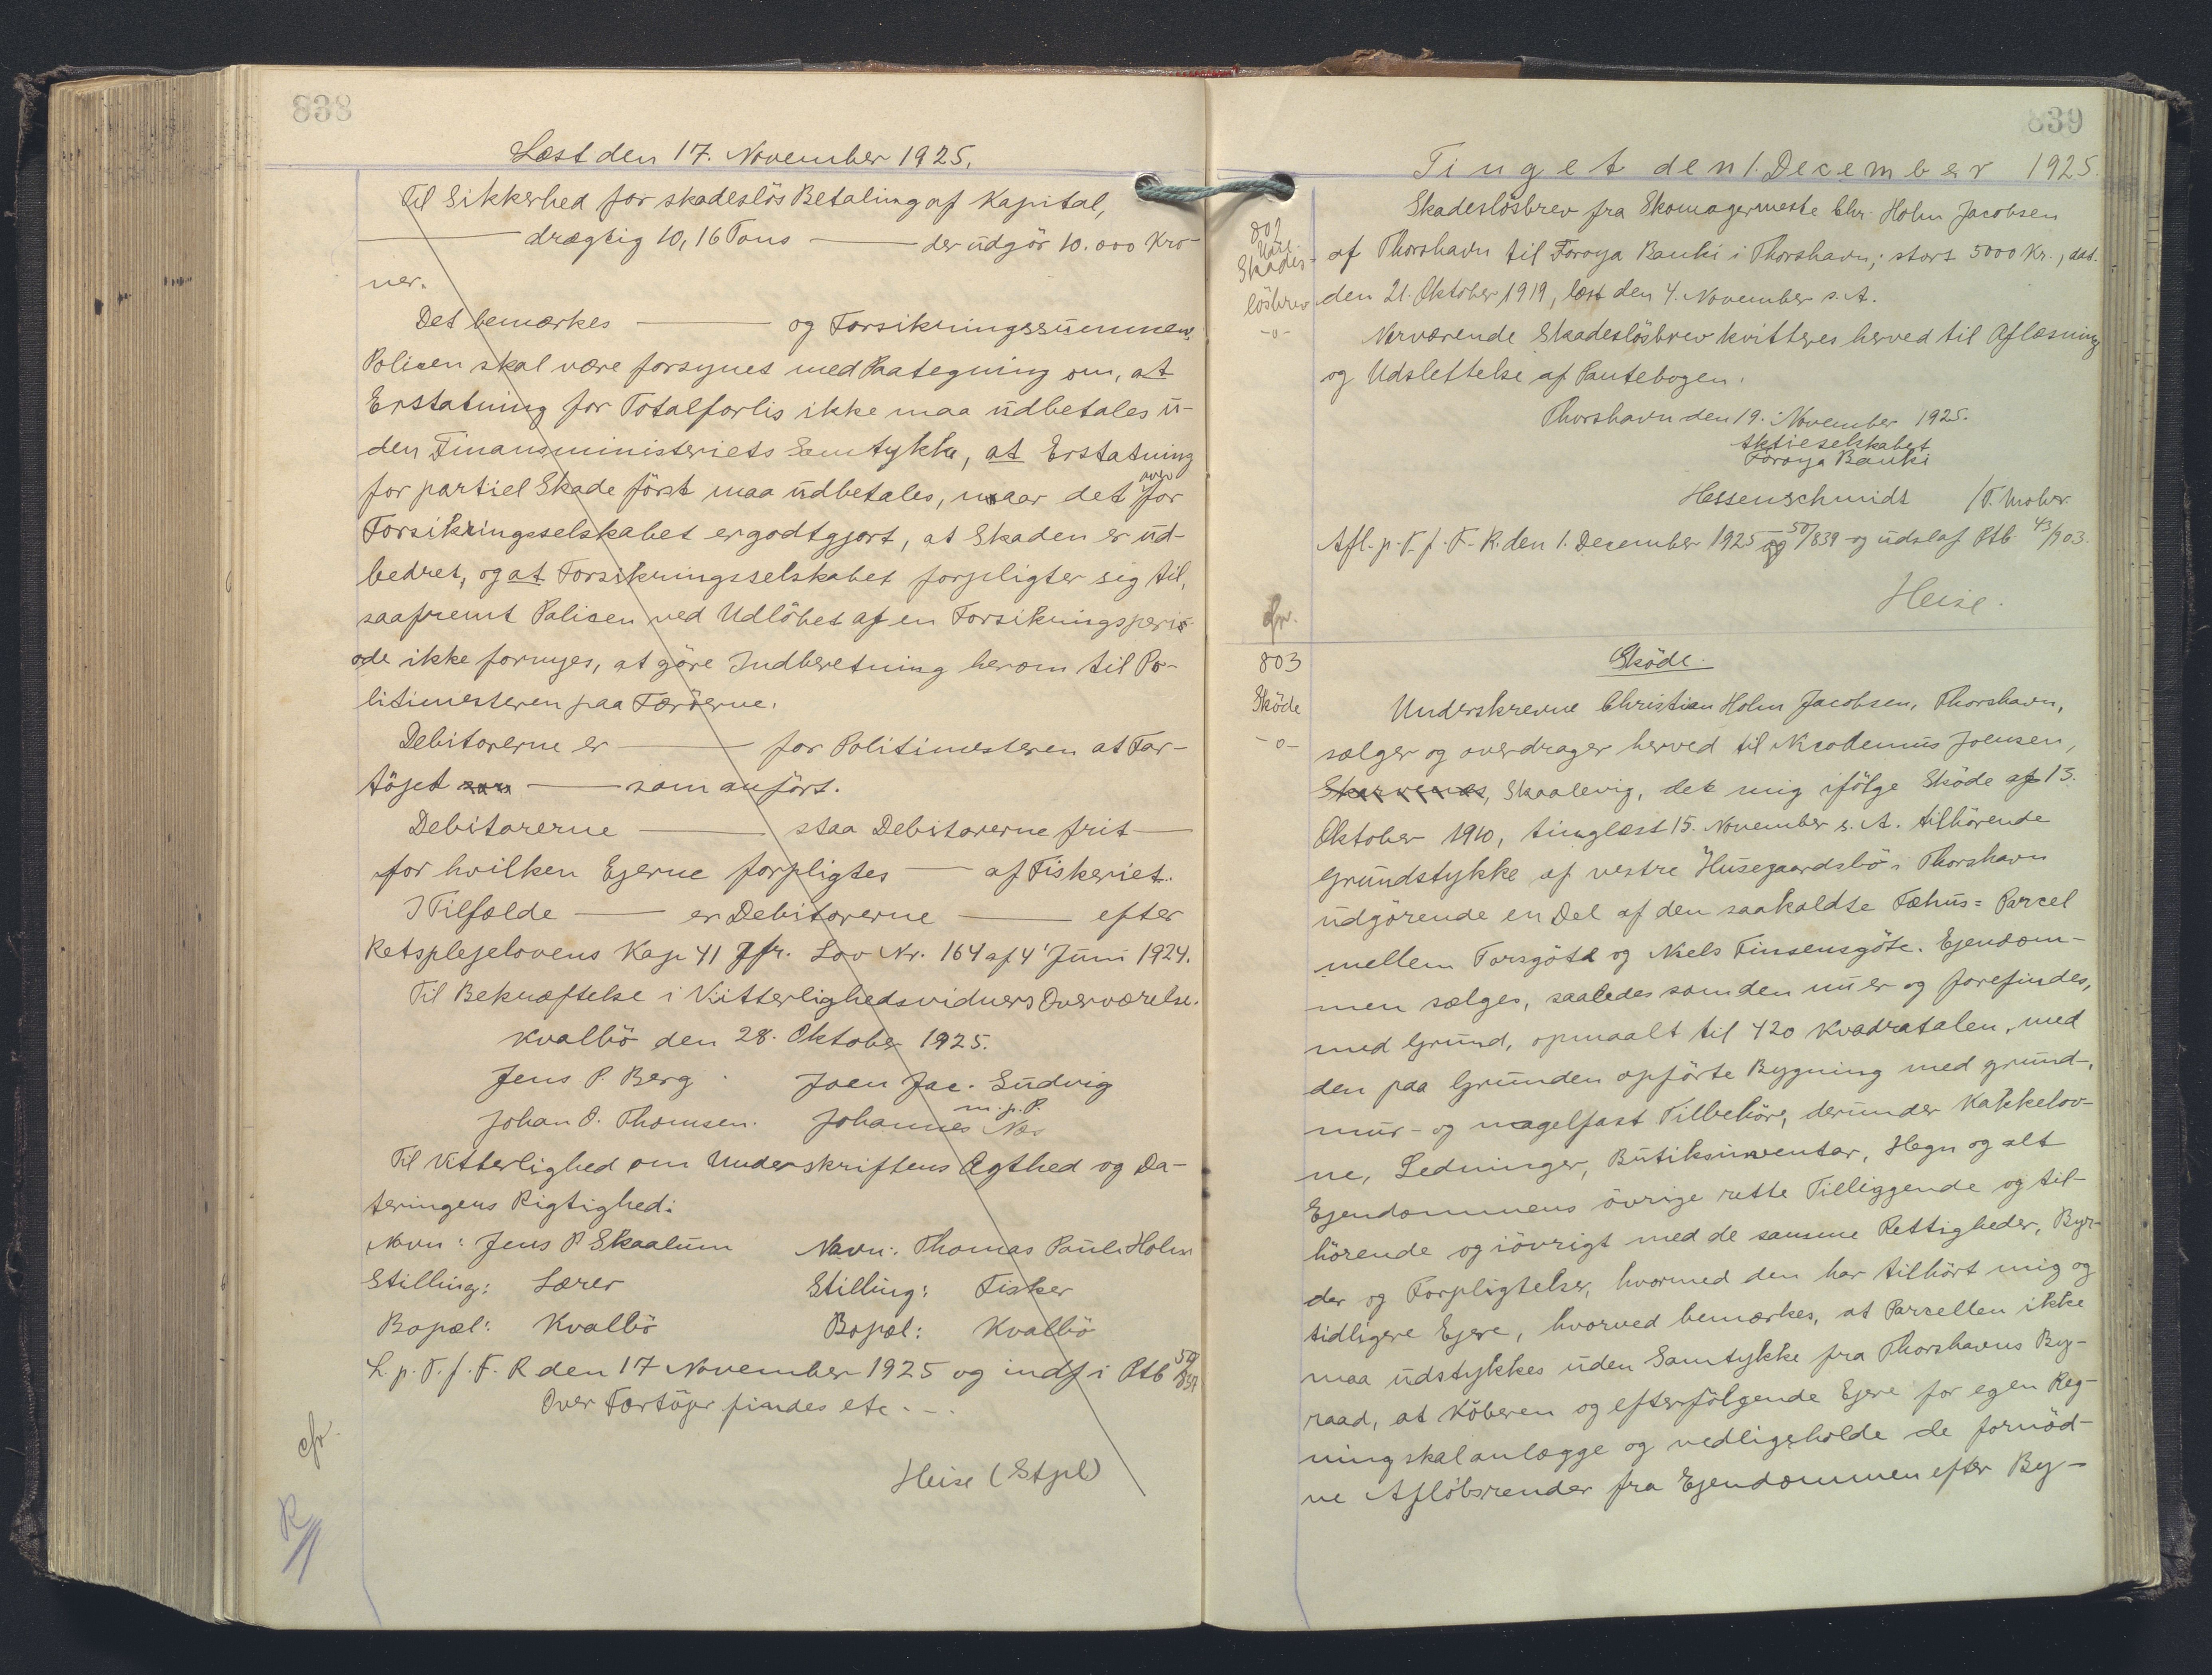 838
Læst den 17. November 1925.
Til Sikkerhed for skadesløs Betaling af Kapital,
——— drægtig 10,16 Tons ——— der udgør 10.000 Kro-
ner.
Det bemærkes ——— og Forsikringssummen.
Policen skal være forsynet med Paategning om, at
Erstatning for Totalforlis ikke maa udbetales u-
den Finansministeriets Samtykke, at Erstatning
for partiel Skade först maa udbetales, naar det over for
Forsikringsselskabet er godtgjort, at Skaden er ud-
bedret, og at Forsikringsselskabet forpligter sig til,
saafremt Policen ved Udlöbet af en Forsikringsperi-
ode ikke fornyes, at göre Indberetning herom til Po-
litimesteren paa Færöerne.
Debitorerne er ——— for Politimesteren at Far-
töjet ——— som anfört.
Debitorerne ——— staa Debitorerne frit ———
for hvilken Ejerne forpligtes ——— af Fiskeriet.
I Tilfælde ——— er Debitorerne ——— efter
Retsplejelovens Kap 41 jfr. Lov Nr. 164 af 4' Juni 1924.
Til Bekræftelse i Vitterlighedsvidners Overværelse.
Kvalbö den 28. Oktober 1925.
Jens P. Berg Joen Jac. Ludvig
m.p.P.
Johan O. Thomsen. Johannes Næs
Til Vitterlighed om Underskriftens Ægthed og Da-
teringens Rigtighed:
Navn: Jens P Skaalum Navn: Thomas Pauli Holm
Stilling: Lærer Stilling: Fisker
Bopæl: Kvalbö Bopæl: Kvalbö
L. p. T. f. F. R den 17 November 1925 og indf i Ptb 50/837
Over Fartöjer findes etc. - .
cfr.
Heise (Stpl)
R
839
Tinget den 1. December 1925.
802
Skades-
lösbrev
-o-
Skadeslösbrev fra Skomagermeste Chr. Holm Jacobsen
af Thorshavn til Foroya Banki i Thorshavn; stort 5000 Kr., dat.
den 21. Oktober 1919, læst den 4. November s. A.
Nærværende Skadeslösbrev kvitteres herved til Aflæsning
og Udslettelse af Pantebogen.
Thorshavn den 19. November 1925.
Aktieselskabet
Foroya Banki
Hessenschmidt /T. Mohr.
Afl. p. T. f. F. R. den 1. December 1925 50/839 og udsl af Ptb. 43/903.
Heise.
cfr.
803
Sköde
-o-
Sköde.
Underskrevne Christian Holm Jacobsen, Thorshavn,
sælger og overdrager herved til Nicodemus Joensen,
Skaalevig, det mig ifölge Sköde af 13.
Oktober 1910, tinglæst 15. November s. A. tilhörende
Grundstykke af vestre Husegaardsbö i Thorshavn
udgörende en Del af den saakaldte Fæhus= Parcel
mellem Torsgöta og Niels Finsensgöte. Ejendom-
men sælges, saaledes som den nu er og forefindes,
med Grund, opmaalt til 420 Kvadratalen, med
den paa Grunden opförte Bygning med grund-,
mur- og nagelfast Tilbehör, derunder Kakkelov-
ne, Ledninger, Butiksinventar, Hegn og alt
Ejendommens övrige rette Tilliggende og til-
hörende og iövrigt med de samme Rettigheder, Byr-
der og Forpligtelser, hvormed den har tilhört mig og
tidligere Ejere, hvorved bemærkes, at Parcellen ikke
maa udstykkes uden Samtykke fra Thorshavns By-
raad, at Köberen og efterfölgende Ejere for egen Reg-
ning skal anlægge og vedligeholde de fornöd-
ne Aflöbsrender fra Ejendommen efter By-